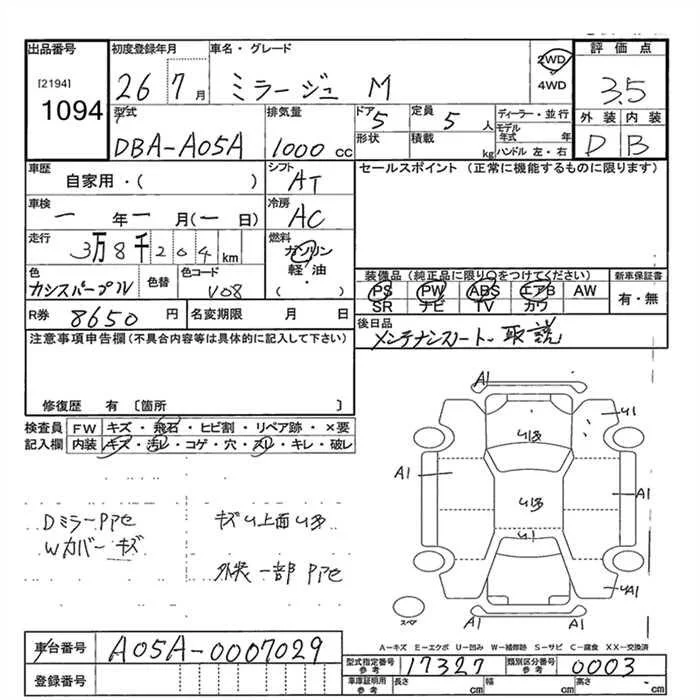 出品番号
[2194]
1094
初度登録年月
26 7月
車名・グレード
ミラージュ M
2WD
4WD
評価点
3.5
外装 内装
D B
型式
DBA-A05A
排気量
1000 cc
ドア
5
形状
定員
5人
積載
kg
ディーラー・並行
モデル年式 年
ハンドル 左・右
車歴
自家用・( )
シフト
AT
セールスポイント (正常に機能するものに限ります)
車検
一年一月(一日)
冷房
AC
走行
3万8千204km
燃料
ガソリン
軽・油
・( )
色
カシスパープル
色替
色コード
V08
装備品 (純正品に限り○をつけてください)
PS PW ABS エアB AW
SR ナビ TV カワ
新車保証書
有・無
R券 8650円
名変期限 月 日
後日品
メンテナンスノート、取説
注意事項申告欄(不具合内容等は具体的に記入して下さい)
修復歴 有 〔箇所 〕
検査員記入欄
FW キズ・飛石・ヒビ割・リペア跡・×要
内装 キズ・汚レ・コゲ・穴・スレ・キレ・破レ
DミラーPアセ
Wカバーキズ
キズU上面U3
外装一部Pアセ
A1
U1
U13
A1
U13
A1
U1
UA1
A1
A1
スペア
A－キズ E－エクボ U－凹み W－補修跡 S－サビ C－腐食 XX－交換済
車台番号
A05A-0007029
登録番号
型式指定番号 参考
17327
類別区分番号 参考
0003
車庫証明用 参考
長さ cm
幅 cm
高さ cm